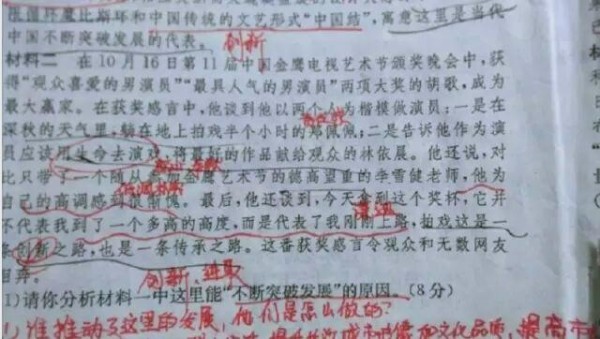 限循环魔比斯环和中国传统的文艺形式“中国结”，寓意这里是当代
中国不断突破发展的代表。
创新
材料二 在10月16日第11届中国金鹰电视艺术节颁奖晚会中，获
得“观众喜爱的男演员”“最具人气的男演员”两项大奖的胡歌，成为
最大赢家。在获奖感言中，他谈到他以两个人为楷模做演员：一是在
深秋的天气里，躺在地上拍戏半个小时的郑佩佩；二是告诉他作为演
员应该用生命去演戏，将最好的作品献给观众的林依晨。他还说，对
比只带了一个随从参加金鹰艺术节的德高望重的李雪健老师，他为
自己的高调感到很惭愧。最后，他还谈到，今天拿到这个奖杯，它并
谦逊
不代表我到了一个多高的高度，而是代表了我刚刚上路，拍戏这是一
条创新之路，也是一条传承之路。这番获奖感言令观众和无数网友
创新、进取
1)请你分析材料一中这里能“不断突破发展”的原因。(8分)
谁推动了这里的发展，他们是怎么做的？